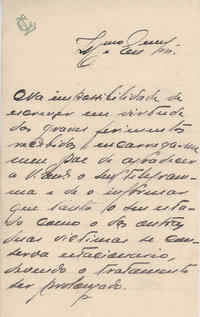 Illmo Exmo
e Am. Snr.
Na impossibilidade de
escrever em virtude
dos graves ferimentos
recebidos encarrega-me
meu pae de agradecer
a V. o seu telegram-
ma e de o informar
que tanto o seu esta-
do como o das outras
duas victimas se con-
serva estacionario,
devendo o tratamento
ser prolongado.